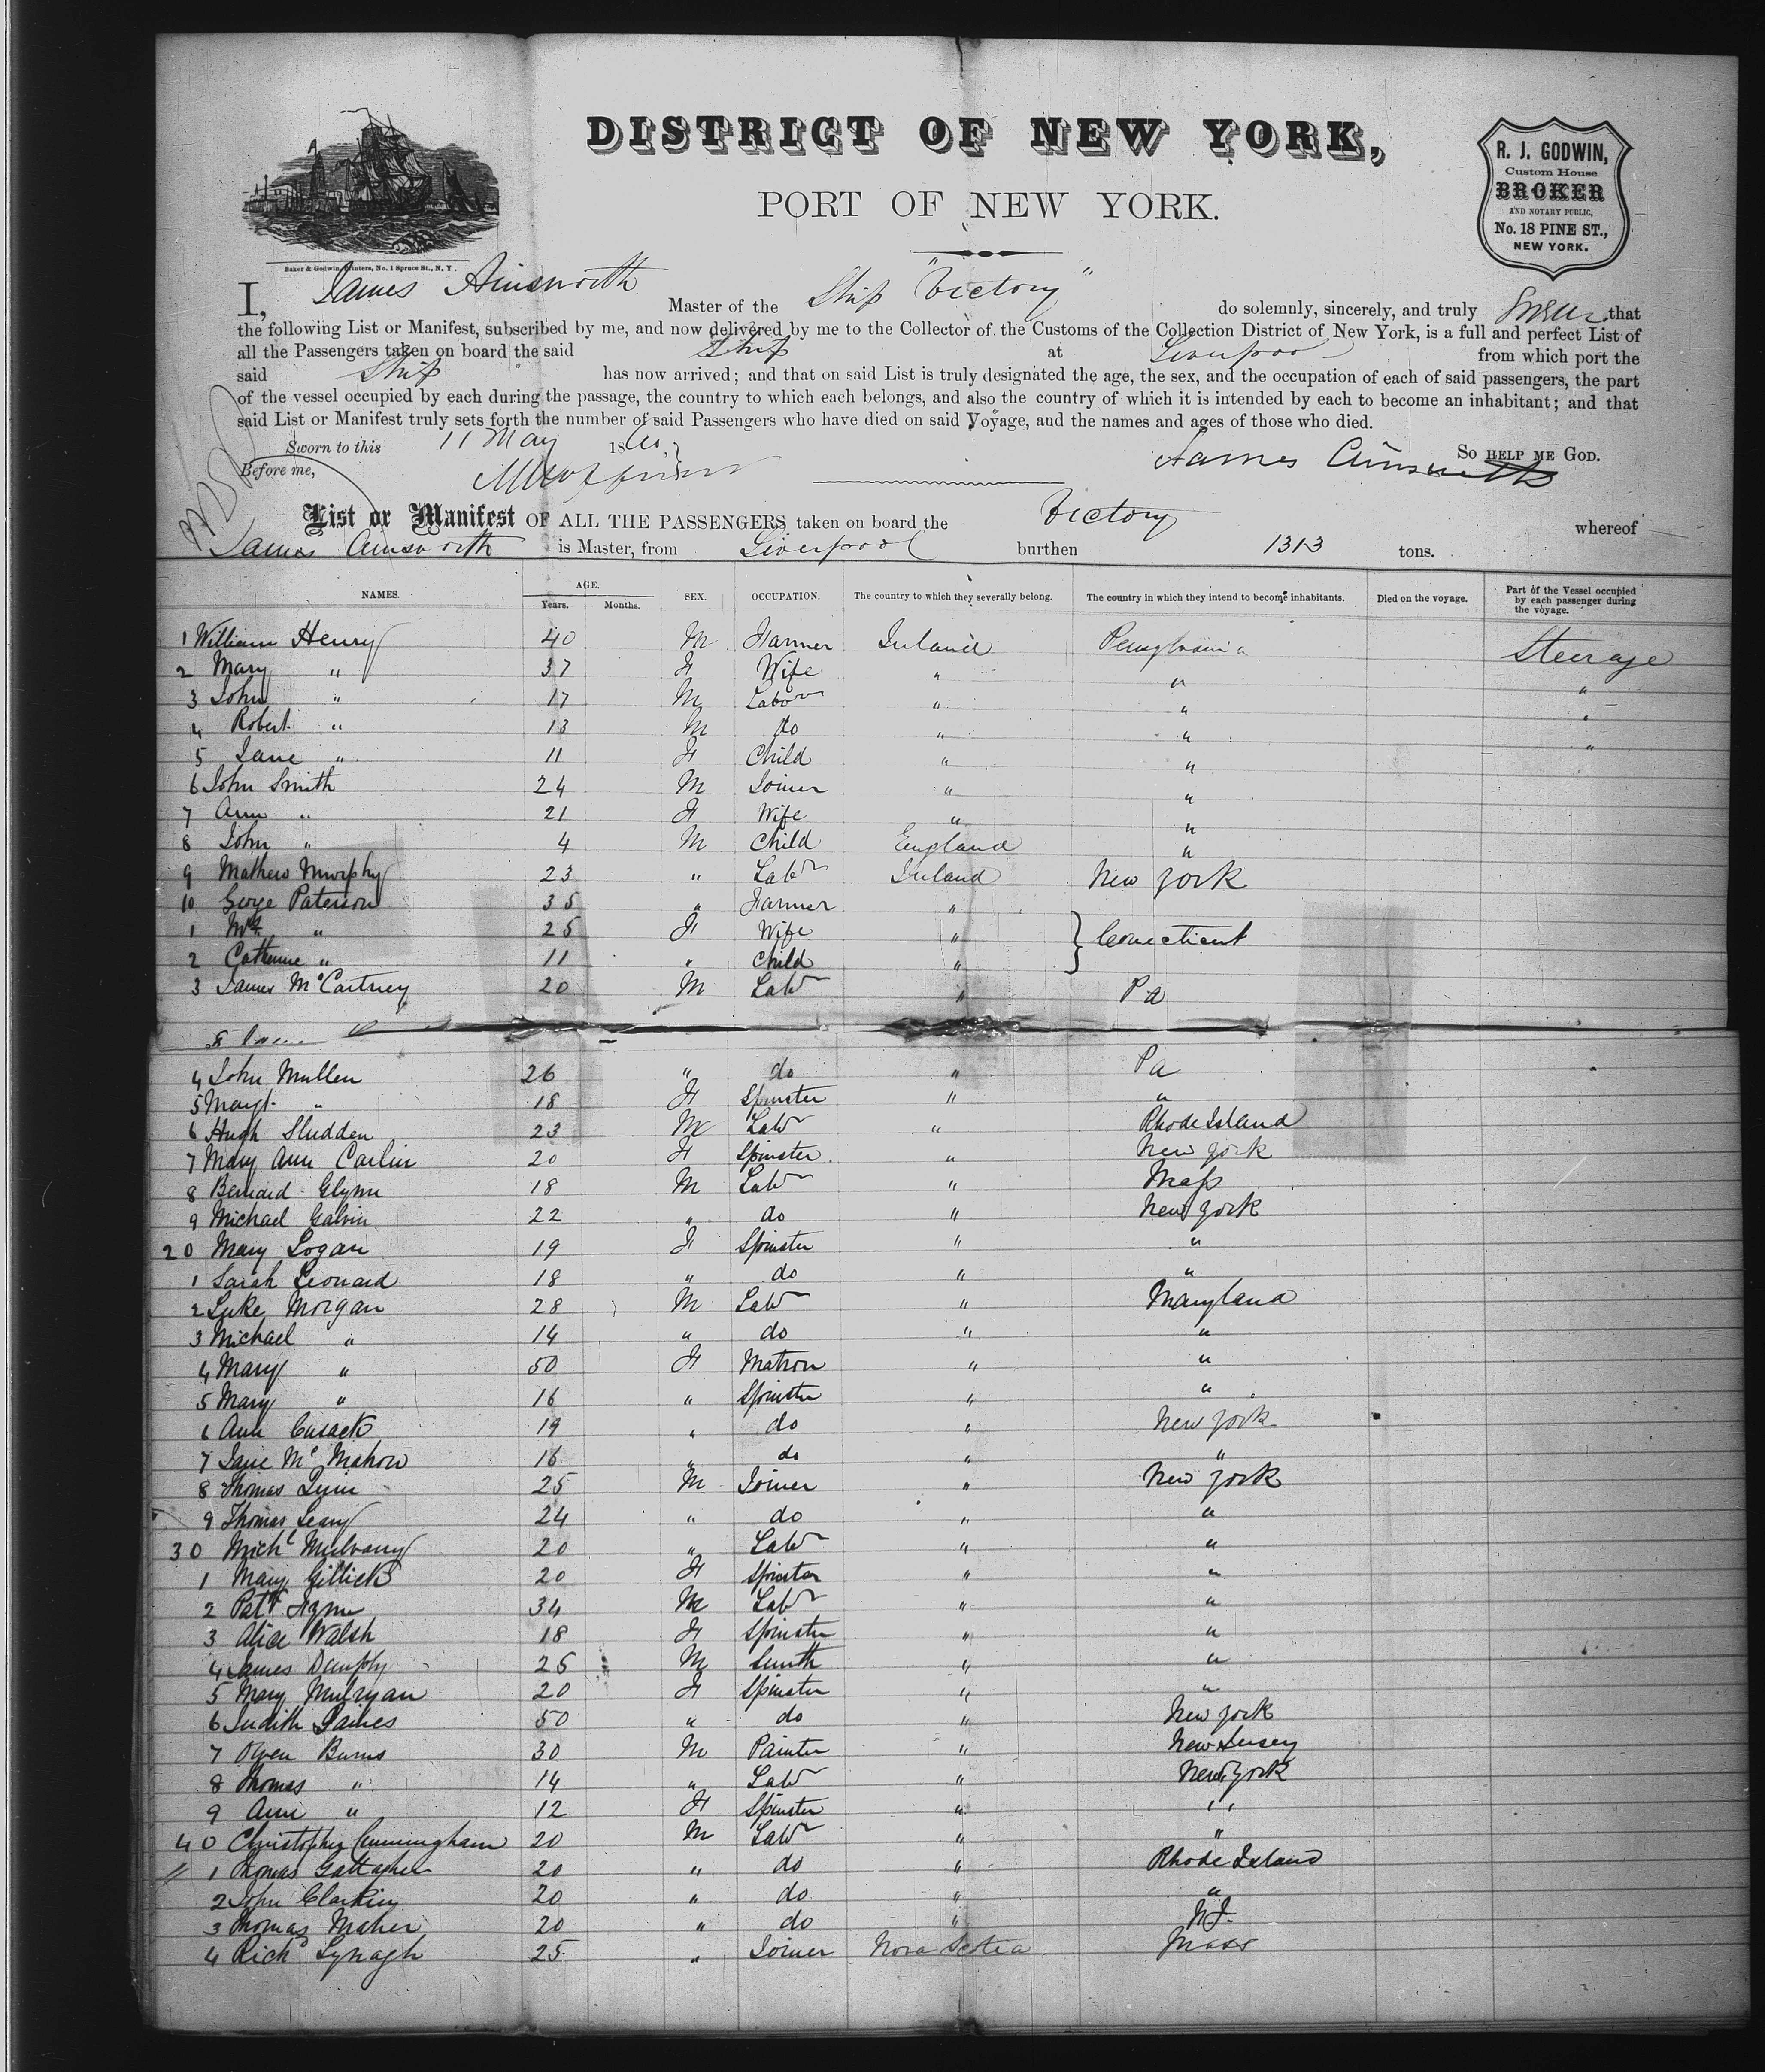 DISTRICT OF NEW YORK,
PORT OF NEW YORK.
R. J. GODWIN,
Custom House
BROKER
AND NOTARY PUBLIC,
No. 18 PINE ST.,
NEW YORK.
Baker & Godwin, Printers, No. 1 Spruce St., N. Y.
I, James Ainsworth Master of the Ship "Victory" do solemnly, sincerely, and truly swear that
the following List or Manifest, subscribed by me, and now delivered by me to the Collector of the Customs of the Collection District of New York, is a full and perfect List of
all the Passengers taken on board the said Ship at Liverpool from which port the
said Ship has now arrived; and that on said List is truly designated the age, the sex, and the occupation of each of said passengers, the part
of the vessel occupied by each during the passage, the country to which each belongs, and also the country of which it is intended by each to become an inhabitant; and that
said List or Manifest truly sets forth the number of said Passengers who have died on said Voyage, and the names and ages of those who died.
Sworn to this 11 May 1860, So HELP ME GOD.
Before me, James Ainsworth
List or Manifest OF ALL THE PASSENGERS taken on board the Victory whereof
James Ainsworth is Master, from Liverpool burthen 1313 tons.
NAMES. AGE. Years. Months. SEX. OCCUPATION. The country to which they severally belong. The country in which they intend to become inhabitants. Died on the voyage. Part of the Vessel occupied by each passenger during the voyage.
1 William Henry 40 M Farmer Ireland Pensylvania Steerage
2 Mary " 37 F Wife " " "
3 John " 17 M Labor " " "
4 Robert " 13 M do " " "
5 Jane " 11 F Child " "
6 John Smith 24 M Joiner " "
7 Ann " 21 F Wife " "
8 John " 4 M Child England "
9 Mathew Murphy 23 " Labr Ireland New York
10 George Paterson 35 " Farmer "
1 Mrs " 25 F Wife " } Conecticut
2 Catherine " 11 " Child "
3 James McCartney 20 M Labr " Pa
4 John Mullen 26 " do " Pa
5 Margt " 18 F Spinster " "
6 Hugh Sludden 23 M Labr " Rhode Island
7 Mary Ann Carlin 20 F Spinster " New York
8 Bernard Glynn 18 M Labr " Mass
9 Michael Galvin 22 " do " New York
20 Mary Logan 19 F Spinster " "
1 Sarah Leonard 18 " do " "
2 Luke Morgan 28 M Labr " Maryland
3 Michael " 14 " do " "
4 Mary " 50 F Matron " "
5 Mary " 16 " Spinster " "
6 Ann Cusack 19 " do " New York
7 Jane McMahon 16 " do " "
8 Thomas Quin 25 M Joiner " New York
9 Thomas Leary 24 " do " "
30 Michl Mulvany 20 " Labr " "
1 Mary Gillick 20 F Spinster " "
2 Patk 34 M Labr " "
3 Alice Walsh 18 F Spinster " "
4 James Dunphy 25 M Smith " "
5 Mary Mulryan 20 F Spinster " "
6 Judith 50 " do " New York
7 Owen Burns 30 M Painter " New Jersey
8 Thomas " 14 " Labr " New York
9 Ann " 12 F Spinster " "
40 Christopher Cunningham 20 M Labr " "
1 Thomas Gallagher 20 " do " Rhode Island
2 John Clarkin 20 " do " "
3 Thomas Maher 20 " do " N.J.
4 Richd Lynagh 25 " Joiner Nova Scotia Mass